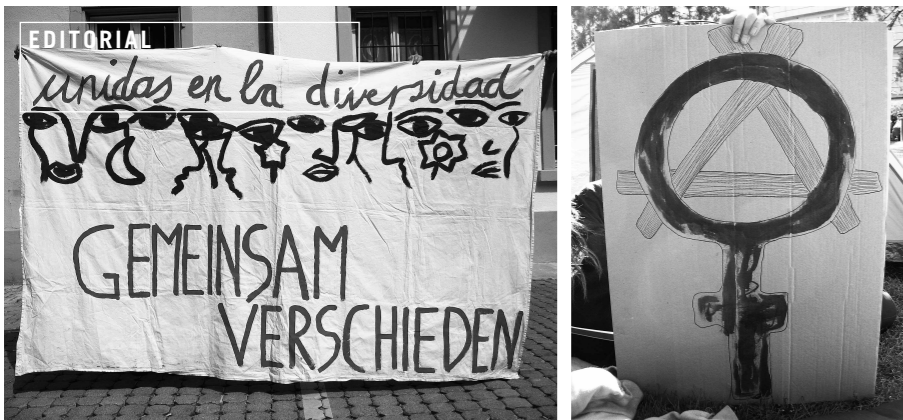 EDITORIAL
unidas en la diversidad
GEMEINSAM
VERSCHIEDEN